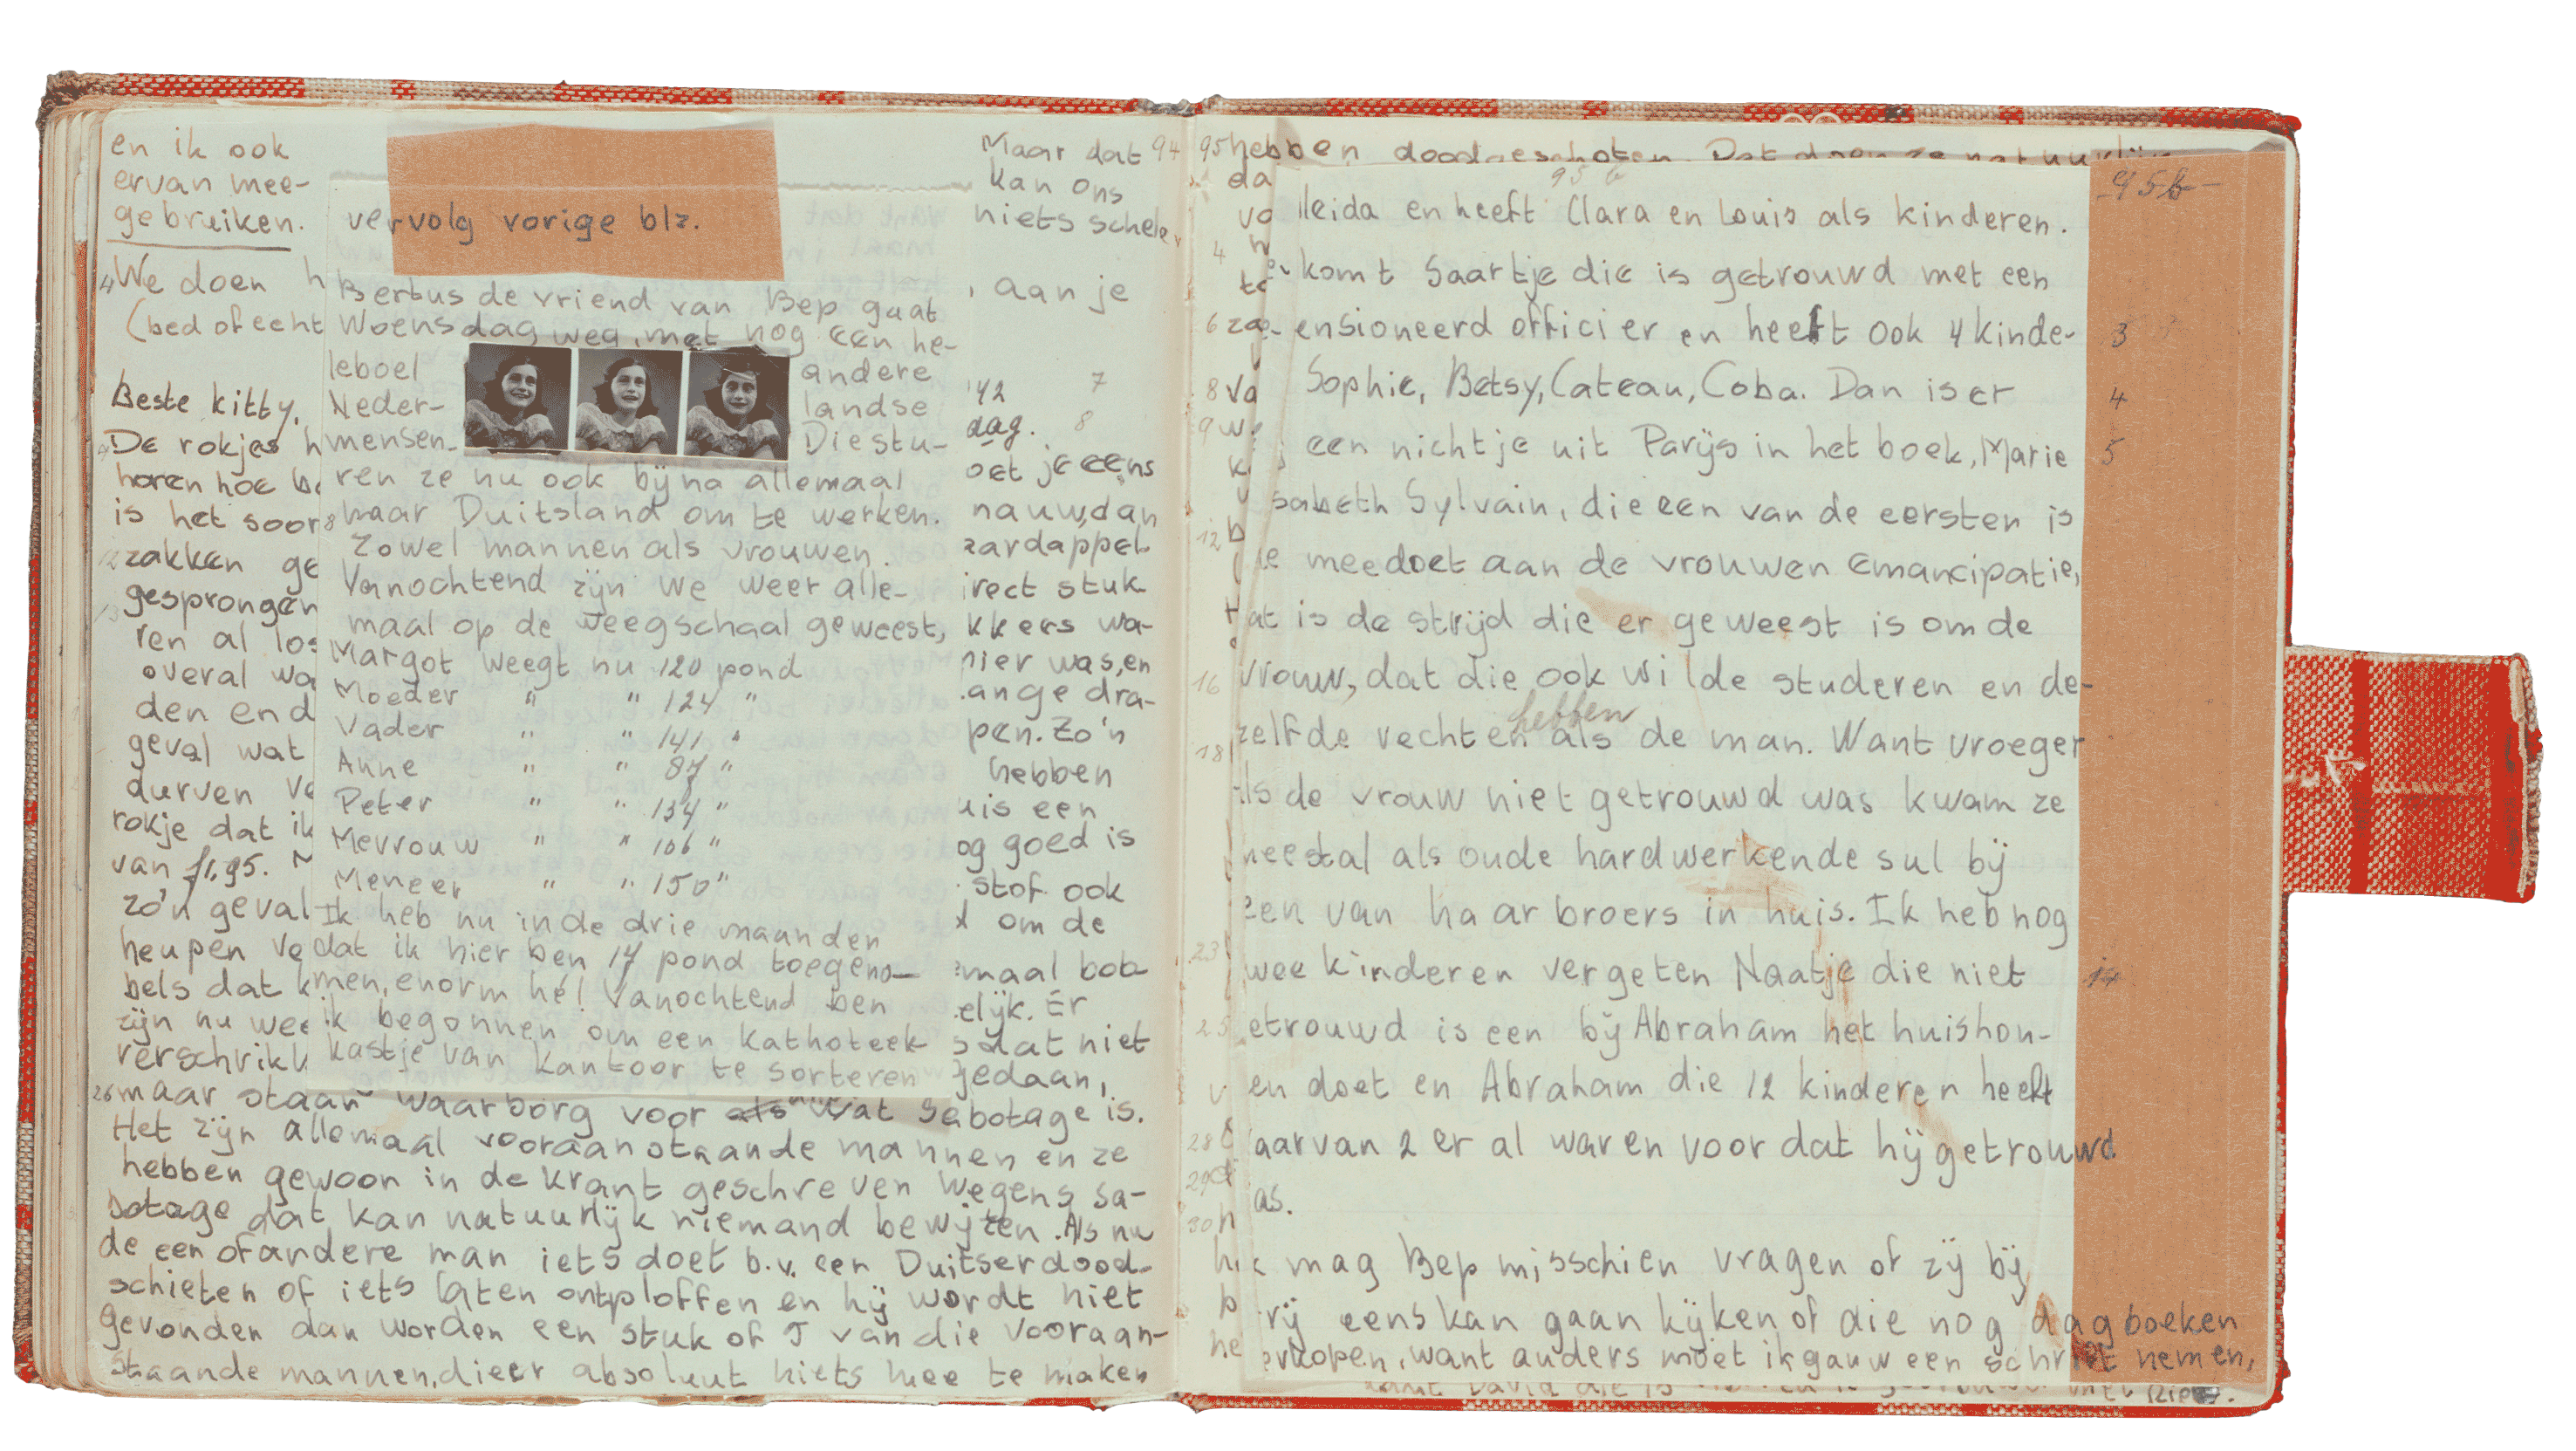 en ik ook
ervan mee-
gebruiken.
4 We doen h
(bed of echt
Beste kitty,
De rokjes h
horen hoe b
is het soor
zakken ge
gesprongen
ren al los
overal wa
den end
geval wat
durven ve
rokje dat ik
van f1,95. M
zo'n geval
heupen ve
bels dat k
zijn nu wee
verschrikl
26 maar staan waarborg voor als wat Sabotage is.
Het zijn allemaal vooraanstaande mannen en ze
hebben gewoon in de krant geschreven wegens sa-
botage dat kan natuurlijk niemand bewijzen. Als nu
de een of andere man iets doet b.v. een Duitser dood-
schieten of iets laten ontploffen en hij wordt niet
gevonden dan worden een stuk of 5 van die vooraan-
staande mannen, die er absoluut niets mee te maken
vervolg vorige blz.
Bertus de vriend van Bep gaat
Woensdag weg, met nog een he-
leboel andere
Neder- landse
mensen. Die stu-
ren ze nu ook bijna allemaal
naar Duitsland om te werken.
Zowel mannen als vrouwen.
Vanochtend zijn we weer alle-
maal op de weegschaal geweest,
Margot weegt nu 120 pond
Moeder " " 124 "
Vader " " 141 "
Anne " " 87 "
Peter " " 134 "
Mevrouw " " 106 "
Meneer " " 150 "
Ik heb nu in de drie maanden
dat ik hier ben 17 pond toegeno-
men, enorm hé! Vanochtend ben
ik begonnen om een kathoteek-
kastje van kantoor te sorteren
Maar dat 94
kan ons
niets schelen
, aan je
42 7
dag. 8
oet je eens
nauw, dan
aardappel-
irect stuk
kkers wa-
hier was, en
ange dra-
pen. Zo'n
hebben
uis een
og goed is
stof ook
om de
emaal bob-
elijk. Er
dat niet
gedaan,
95 hebben doodgeschoten. Dat doen ze natuurlijk
da
95 b
95 b
lleida en heeft Clara en Louis als kinderen.
komt Saartje die is getrouwd met een
ensioneerd officier en heeft ook 4 kinde- 3
Sophie, Betsy, Cateau, Coba. Dan is er 4
een nichtje uit Parijs in het boek, Marie 5
sabeth Sylvain, die een van de eersten is
ie meedoet aan de vrouwen emancipatie,
at is de strijd die er geweest is om de
16 vrouw, dat die ook wilde studeren en de-
hebben
18 zelfde rechten als de man. Want vroeger
als de vrouw niet getrouwd was kwam ze
meestal als oude hardwerkende sul bij
een van haar broers in huis. Ik heb nog
23 wee kinderen vergeten Naatje die niet 14
25 etrouwd is een bij Abraham het huishou-
en doet en Abraham die 12 kinderen heeft
28 aarvan 2 er al waren voor dat hij getrouwd
29 as.
30
k mag Bep misschien vragen of zij bij
rij eens kan gaan kijken of die nog dagboeken
erkopen, want anders moet ik gauw een schrift nemen,